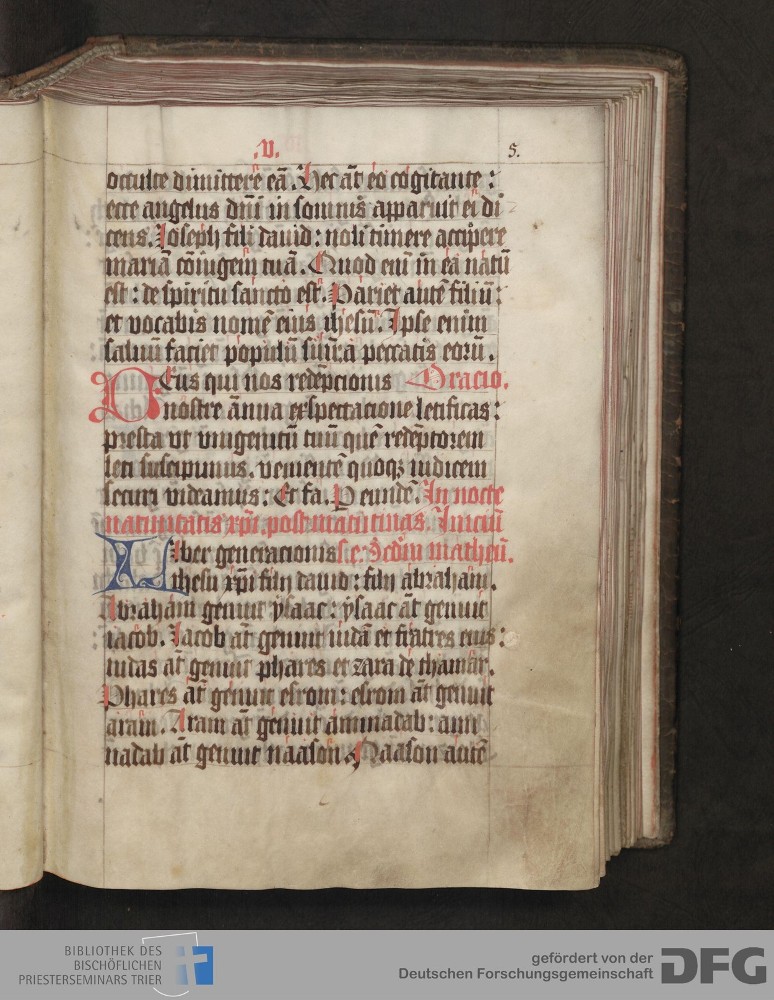 .v. 5.
occulte dimittere eā. Hec aūt eo cogitante:
ecce angelus dn̄i in somnis apparuit ei di
cens. Joseph fili dauid: noli timere accipere
mariā coīugem tuā. Quod eni in ea natū
est: de spiritu sancto est. Pariet autē filiū:
et vocabis nomē eius ihesū. Ipse enim
saluū faciet populū suū: a peccatis eorū.
DEus qui nos redēpcionis Oracio.
nostre annua exspectacione letificas:
presta vt vnigenitū tuū quē redēptorem
leti suscipimus. venientē quoqꝫ iudicem
securi videamus: Et fa. P eundē. In nocte
natiuitatis xp̄i. post matutinas. Iniciū
LIber generacionis s. e. scd̄m matheū.
ihesu xp̄i filij dauid: filij abraham.
Abraham genuit ysaac: ysaac aūt genuit
iacob. Jacob aūt genuit iudā et fratres eius:
iudas aūt genuit phares et zara de thamar.
Phares aūt genuit esrom: esrom aūt genuit
aram. Aram aūt genuit aminadab: ami
nadab aūt genuit naason. Naason autē
BIBLIOTHEK DES
BISCHÖFLICHEN
PRIESTERSEMINARS TRIER
gefördert von der
Deutschen Forschungsgemeinschaft DFG